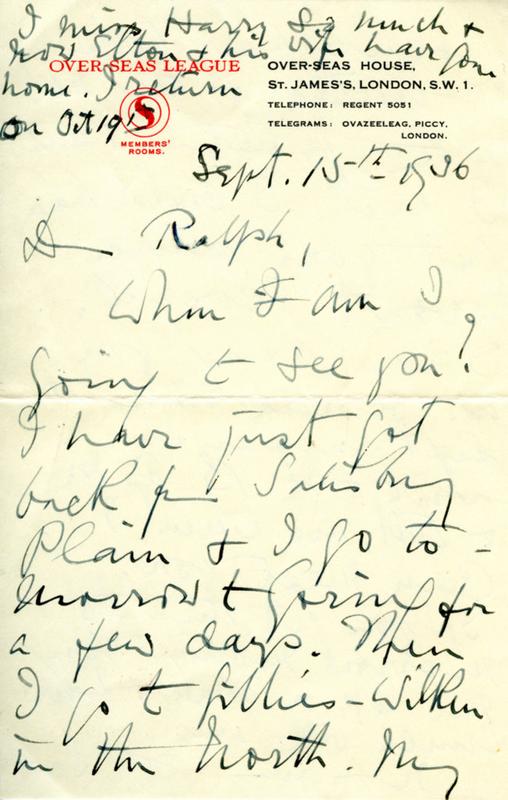 I miss Harry so much &
now Elton & his wife have gone
home. I return
on Oct 19th
OVER-SEAS LEAGUE
MEMBERS'
ROOMS.
OVER-SEAS HOUSE,
ST. JAMES'S, LONDON, S.W.1.
TELEPHONE: REGENT 5051
TELEGRAMS: OVAZEELEAG, PICCY,
LONDON.
Sept. 15th 1936
Dr Ralph,
When I am I
going to see you?
I have just got
back from Salisbury
Plain & I go to-
morrow to Goring for
a few days. Then
I go to Gillies-Wilkin
in the North. My